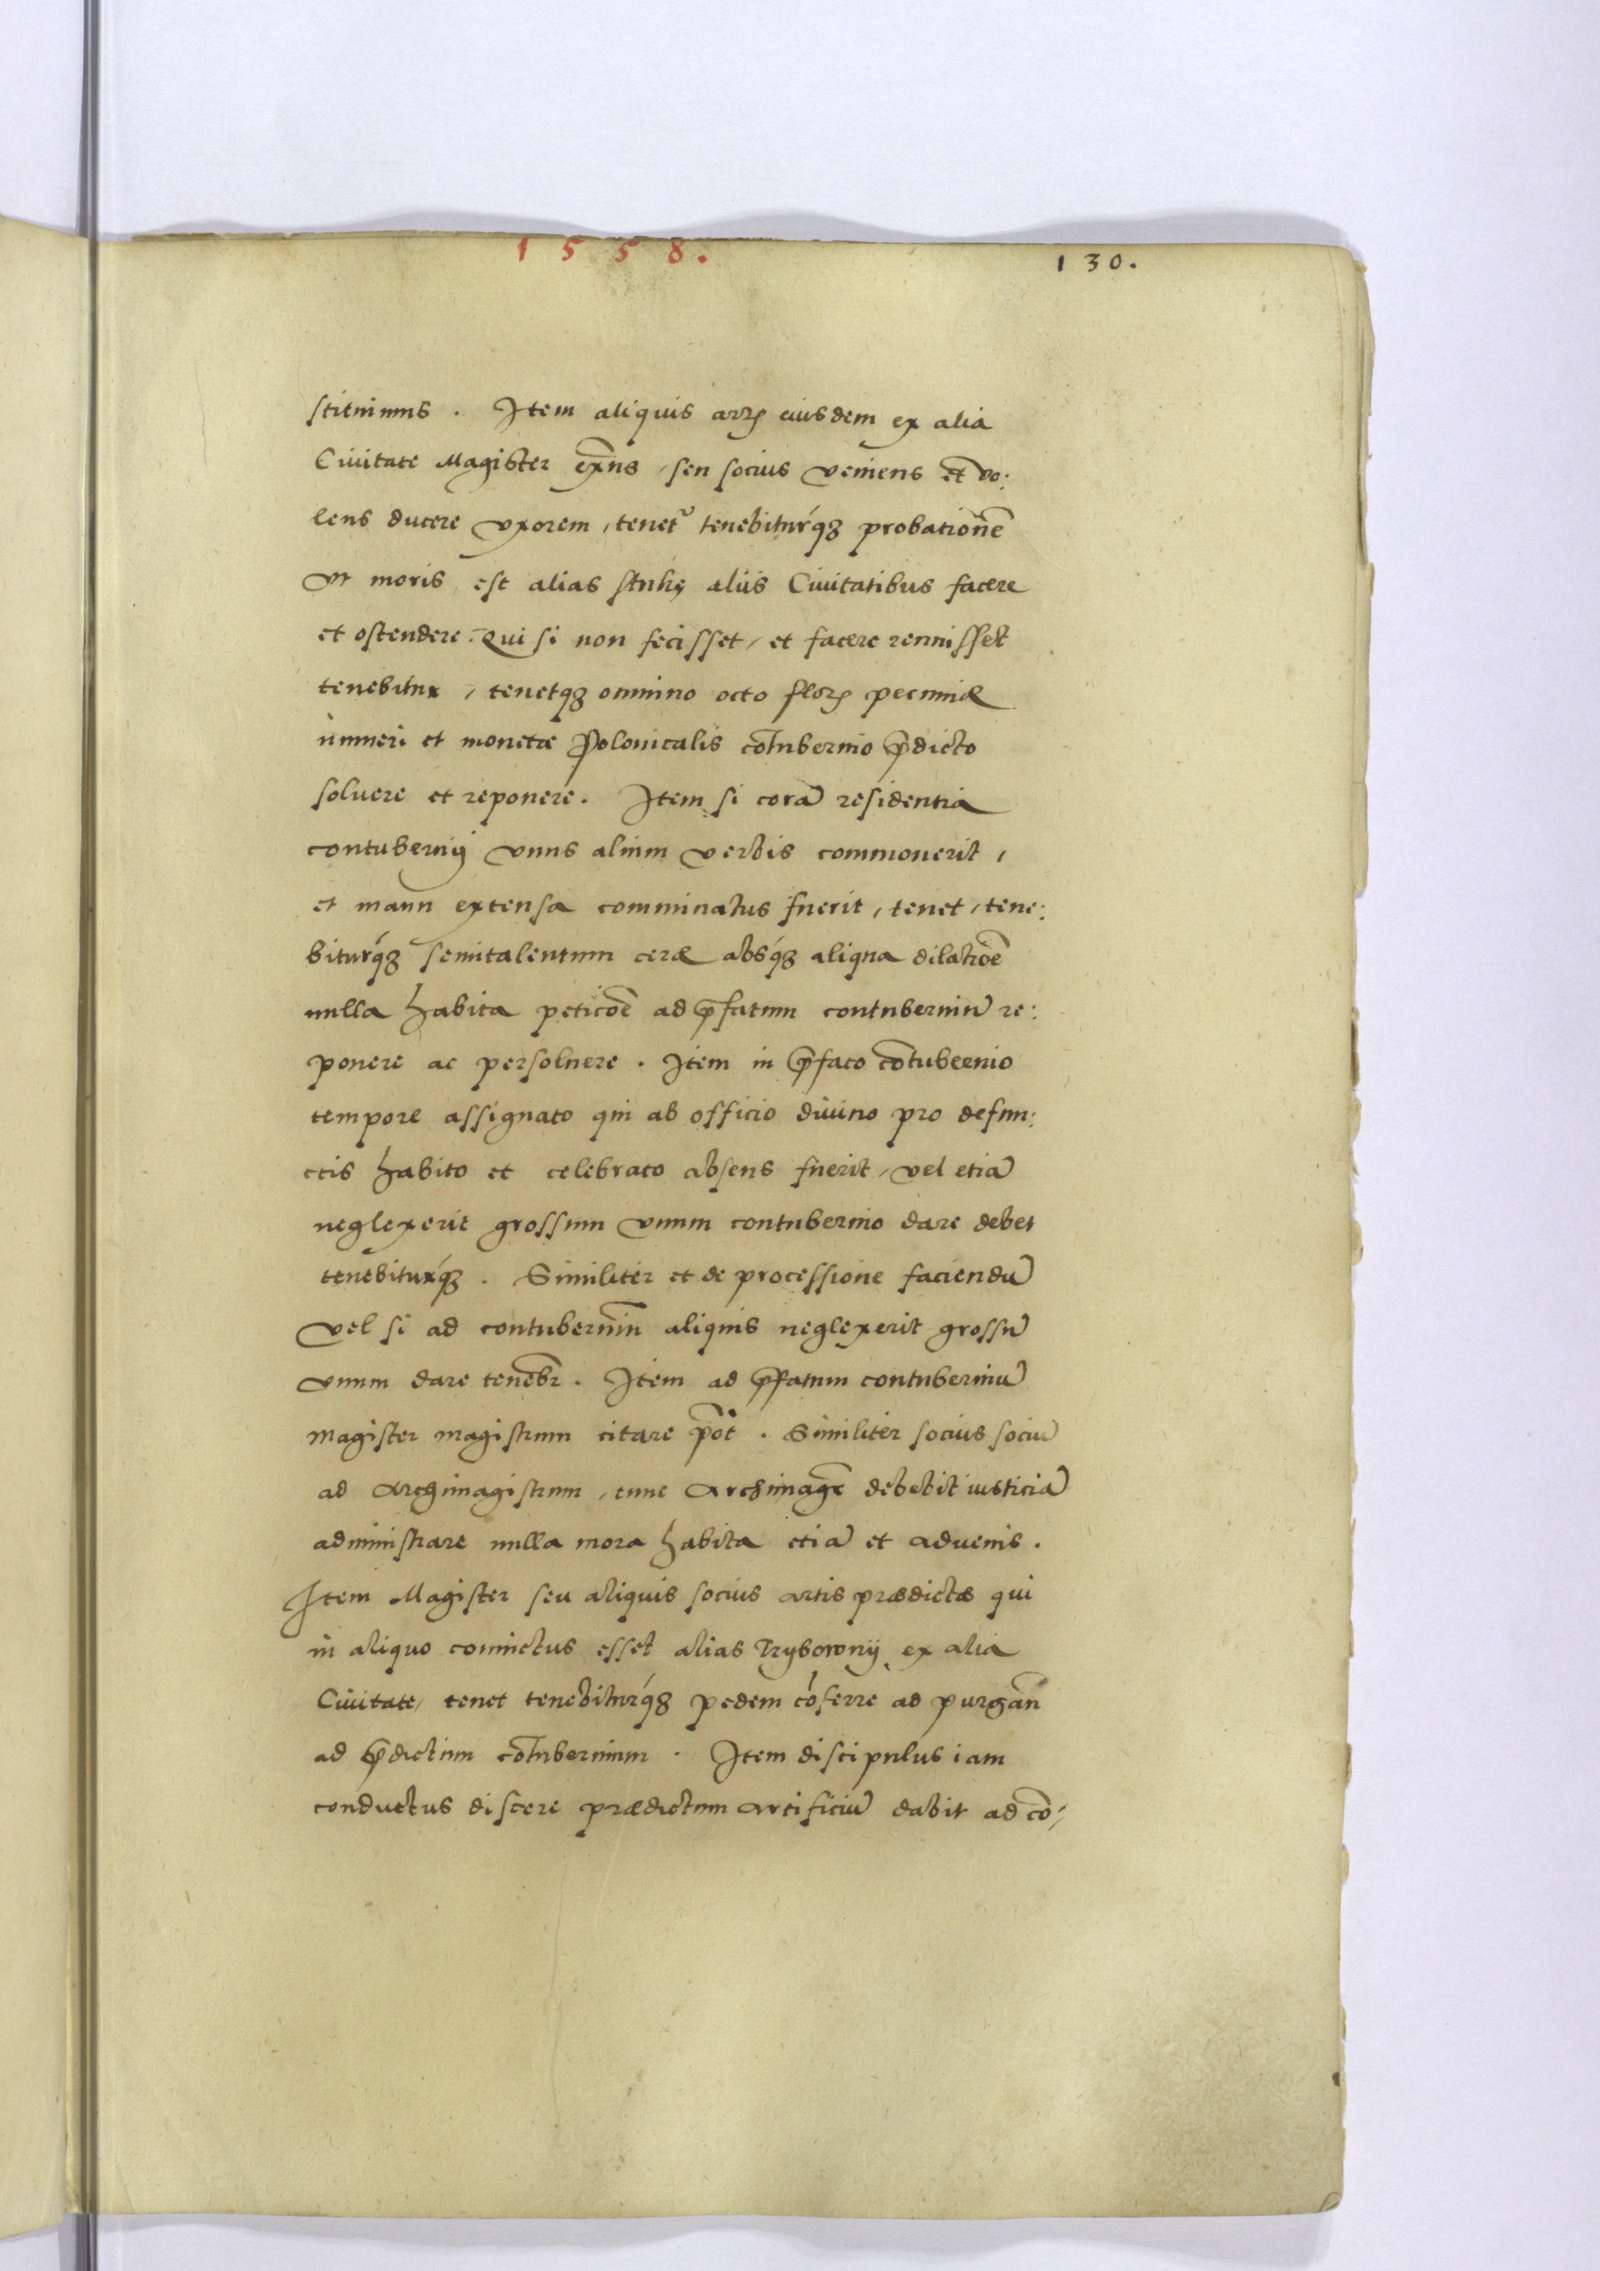 1558.
130.
stituimus. Item aliquis artꝭ eiusdem ex alia
Ciuitate Magister exñs, seu socius veniens et vo:
lens ducere vxorem, tenet᷑ tenebiturq́ꝫ probationẽ
vt moris est alias sztuky aliis Ciuitatibus facere
et ostendere. Qui si non fecisset, et facere rennisset
tenebitur, tenetqꝫ omnino octo florꝭ pecuniæ
numeri et monetæ Polonicalis cõtubernio p̃dicto
soluere et reponere. Item si corã residentia
contubernij vnus alium verbis commouerit,
et manu extensa comminatus fuerit, tenet, tene:
biturq́ꝫ semitalentum ceræ absq́ꝫ aliqua dilatiõe
nulla habita peticõe ad p̃fatum contuberniũ re:
ponere ac persoluere. Item in p̃fato cõtubernio
tempore assignato qui ab officio diuino pro defun:
ctis habito et celebrato absens fuerit, vel etiã
neglexerit grossum vnum contubernio dare debet
tenebiturq́ꝫ. Similiter et de processione faciendũ
vel si ad contuberniũ aliquis neglexerit grossũ
vnum dare teneb̃r. Item ad p̃fatum contuberniũ
magister magistrum citare põt. Similiter socius sociũ
ad Archimagistrum, tunc Archimagr̃ debebit iusticiã
administrare nulla mora habita etiã et aduenis.
Item Magister seu aliquis socius artis prædictæ qui
in aliquo conuictus esset alias Tryboronij ex alia
Ciuitate, tenet tenebiturq́ꝫ pedem cõferre ad purgan̄
ad p̃dictum cõtubernium. Item discipulus iam
conductus discere prædictum artificiũ dabit ad cõ-